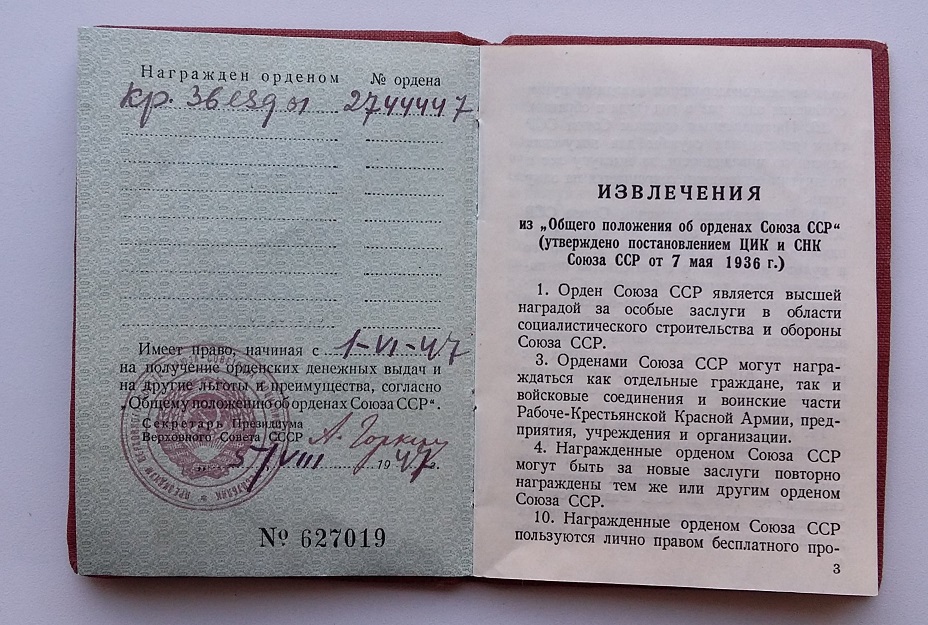 Награжден орденом № ордена
Кр. Звезды 2744447
Имеет право, начиная с 1-VI-47
на получение орденских денежных выдач и
на другие льготы и преимущества, согласно
„Общему положению об орденах Союза ССР“.
Секретарь Президиума
Верховного Совета СССР А. Горкин
5/VIII 1947г.
№ 627019
ИЗВЛЕЧЕНИЯ
из „Общего положения об орденах Союза ССР“
(утверждено постановлением ЦИК и СНК
Союза ССР от 7 мая 1936 г.)
1. Орден Союза ССР является высшей
наградой за особые заслуги в области
социалистического строительства и обороны
Союза ССР.
3. Орденами Союза ССР могут награ-
ждаться как отдельные граждане, так и
войсковые соединения и воинские части
Рабоче-Крестьянской Красной Армии, пред-
приятия, учреждения и организации.
4. Награжденные орденом Союза ССР
могут быть за новые заслуги повторно
награждены тем же или другим орденом
Союза ССР.
10. Награжденные орденом Союза ССР
пользуются лично правом бесплатного про-
3